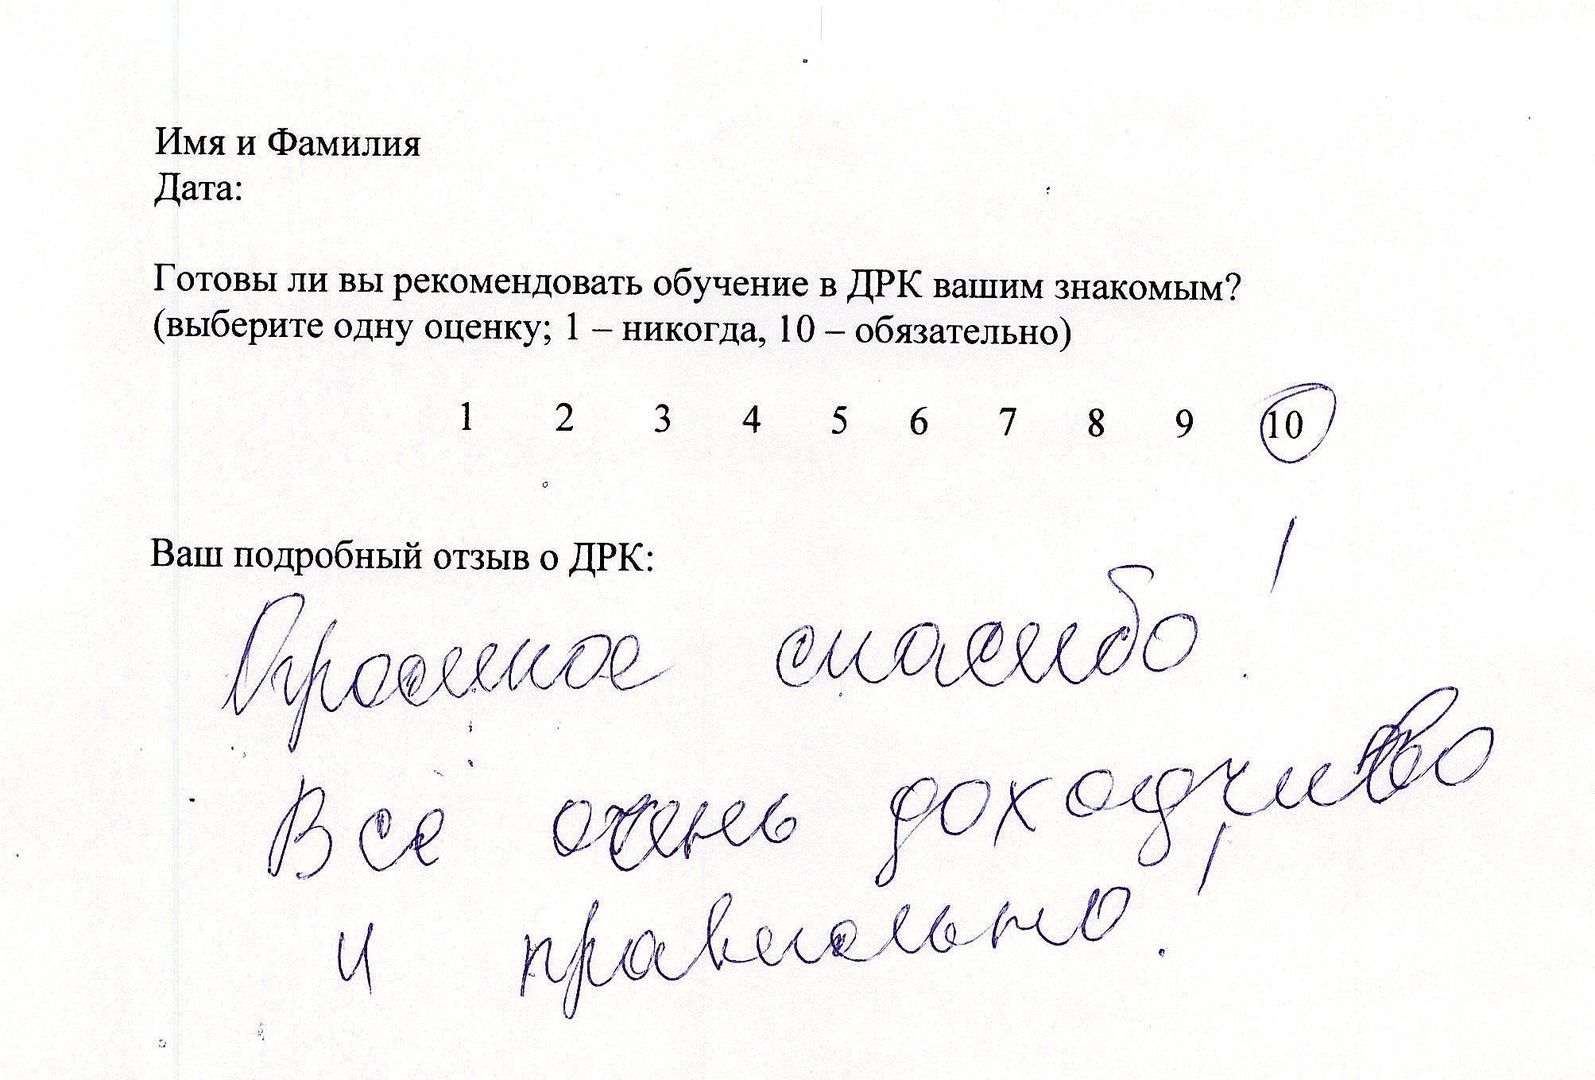 Имя и Фамилия
Дата:
Готовы ли вы рекомендовать обучение в ДРК вашим знакомым?
(выберите одну оценку; 1 – никогда, 10 – обязательно)
1 2 3 4 5 6 7 8 9 10
Ваш подробный отзыв о ДРК:
Огромное спасибо!
Всё очень доходчиво
и правильно!